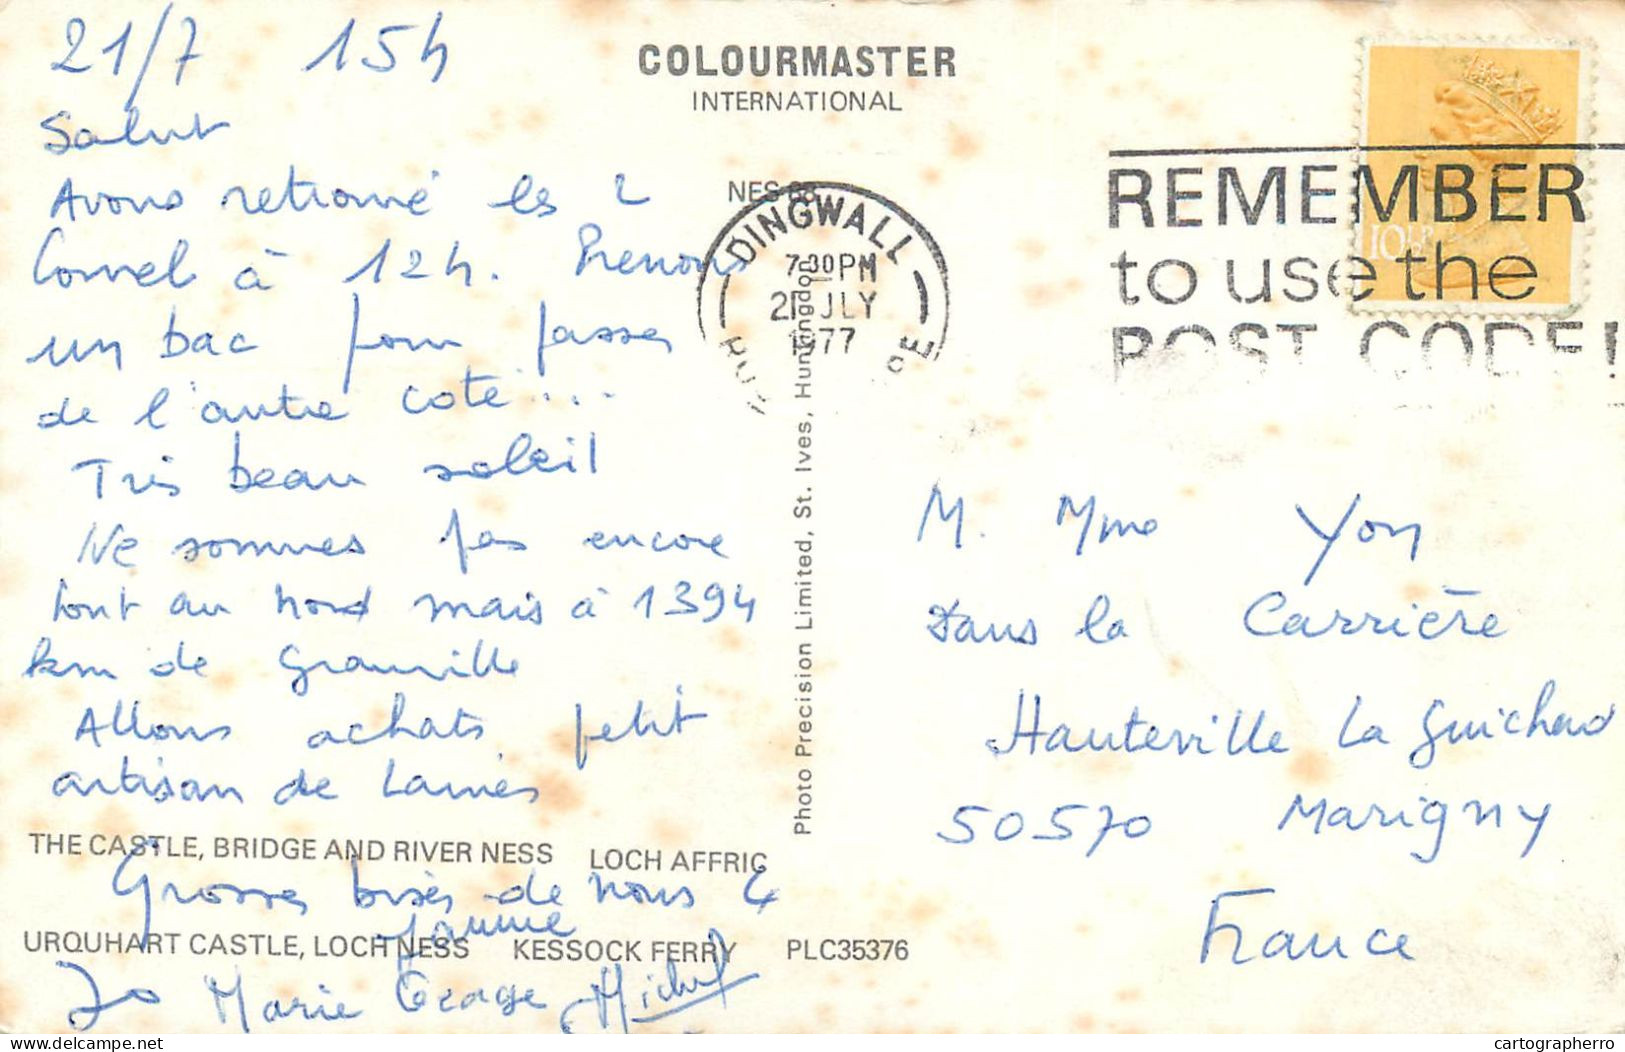 21/7 15h
Salut
Avons retrouvé les 2
Corvel à 12h. Prenons
un bac pour passer
de l'autre coté...
Très beau soleil
Ne sommes pas encore
tout au nord mais à 1394
km de Granville
Allons achats petit
artisan de Laines
Grosses bises de nous 4
Jo Marie George Michel
COLOURMASTER
INTERNATIONAL
NES 68
DINGWALL
7.30PM
21 JLY
1977
REMEMBER
to use the
POST CODE!
10P
Photo Precision Limited, St. Ives, Huntingdon
M. Mme Yon
Dans la Carrière
Hauteville La Guichard
50570 Marigny
France
THE CASTLE, BRIDGE AND RIVER NESS LOCH AFFRIC
URQUHART CASTLE, LOCH NESS KESSOCK FERRY PLC35376
cartographerro